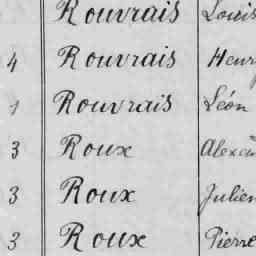 Rouvrais Louis
4 Rouvrais Henry
1 Rouvrais Léon
3 Roux
3 Roux Julien
3 Roux Pierre